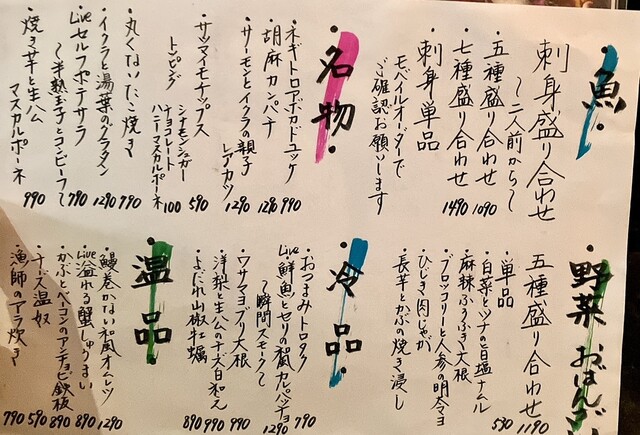 ・魚・
刺身盛り合わせ
〜二人前から〜
・五種盛り合わせ 1090
・七種盛り合わせ 1490
・刺身単品
モバイルオーダーで
ご確認お願いします
・名物・
・ネギトロアボカドユッケ 990
・胡麻カンパチ 1290
・サーモンとイクラの親子レアカツ 1290
・サツマイモチップス 590
トッピング
シナモンシュガー
チョコレート
ハニーマスカルポーネ 100
・丸くないたこ焼き 790
・イクラと湯葉のグラタン 1290
・Live セルフポテサラ
〜半熟玉子とコンビーフ〜 790
・焼き芋と生ハム
マスカルポーネ 990
・野菜おばんざい
五種盛り合わせ 1190
単品 590
・白菜とツナの旨塩ナムル
・麻辣ふろふき大根
・ブロッコリーと人参の明太マヨ
・ひじき肉じゃが
・長芋とかぶの焼き浸し
・冷品・
・おつまみトロタク 790
・Live 鮮魚とセリの和風カルパッチョ
〜瞬間スモーク〜 1290
・ワサマヨブリ大根 990
・洋梨と生ハムのチーズ白和え 990
・よだれ山椒牡蠣 890
・温品・
・鰻巻かない和風オムレツ 1290
・Live 溢れる蟹しゅうまい 890
・かぶとベーコンのアンチョビ鉄板 890
・チーズ温奴 590
・漁師のアラ炊き 790